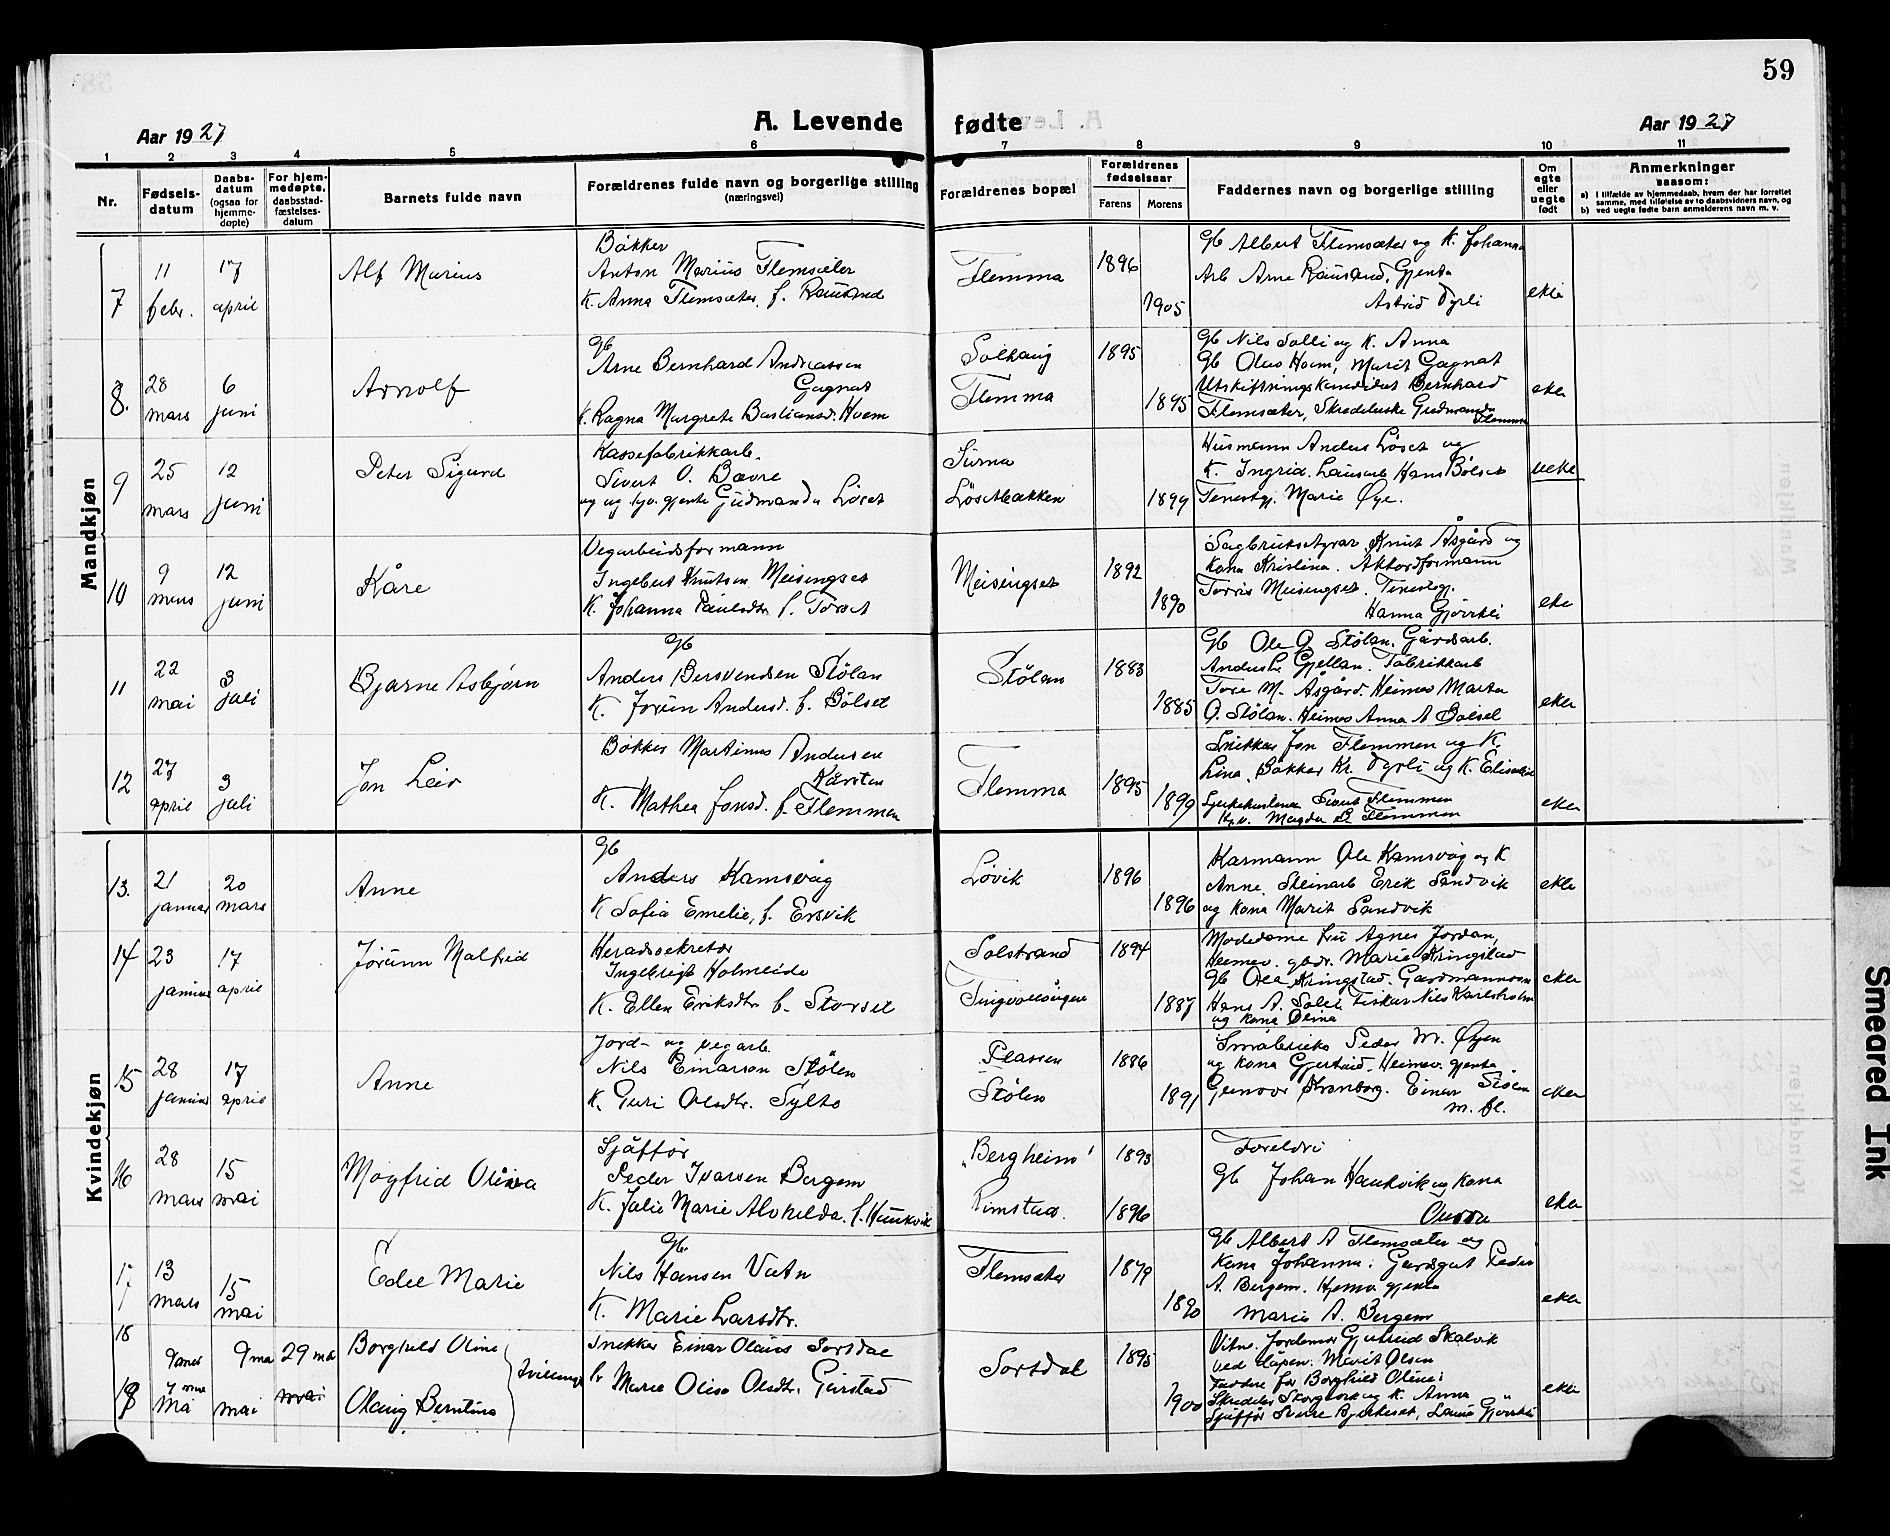 59
Aar 1927
A. Levende
fødte
Aar 1927
1 2 3 4 5 6 7 8 9 10 11
Nr.
Fødselsdatum
Daabsdatum (ogsaa for hjemmedøpte)
For hjemmedøpte, daabsstadfæstelsesdatum
Barnets fulde navn
Forældrenes fulde navn og borgerlige stilling
(næringsvei)
Forældrenes bopæl
Forældrenes fødselsaar
Farens
Morens
Faddernes navn og borgerlige stilling
Om egte eller uegte født
Anmerkninger
saasom:
a) I tilfælde av hjemmedaab, hvem der har forrettet samme, med tilføielse av to daabsvidners navn, og
b) ved uegte fødte barn anmelderens navn m. v.
Mandkjøn
7
11 febr.
17 april
Alf Marius
Bøkker
Anton Marius Flemsæter
K. Anna Flemsæter, f. Rausand
Flemma
1896
1905
Gb Albert Flemsæter og K. Johanna
Arb Arne Rausand, Gjenta
Astrid Dyrli
ekte
8.
28 mars
6 juni
Arnolf
Gb
Arne Bernhard Andreassen
Gagnat
K. Ragna Margrete Bastiansd. Hoem
Solhaug
Flemma
1895
1895
Gb Nils Solli og K. Anna
Gb Olus Hoem, Marit Gagnat
Utskiftningskandidat Bernhard
Flemsæter, Gudmunda
Flemma
ekte
9
25 mars
12 juni
Peter Sigurd
Kassefabrikkarb.
Sivert O. Bævre
og ug. gjente Gudmunda Løset
Surna
Løsetbakken
1899
Husmann Anders Løset og
K. Ingrid. Hans Bølset
Tenestgj. Marie Øye.
uekte
10
9 mars
12 juni
Kåre
Vegarbeidsformann
Ingebert Knutsen Meisingset
K. Johanna Paulsdtr f. Torset
Meisingset
1892
1890
Sagbruksstyrar Knut Åsgård og
Kona Kristina. Akkordformann
Torris Meisingset. Tenestgj.
Hanna Gjørrkli
ekte
11
22 mai
3 juli
Bjarne Asbjørn
Gb
Anders Bersvendsen Stølan
K. Jorun Andersd. f. Bølset
Stølan
1883
1885
Gb Ole O Stølan. Gårdsarb.
Anders Gjellan. Fabrikkarb
Tore M. Åsgård. Heimev Marta
O. Stølan. Heimev Anna A Bølset
ekte
12
27 april
3 juli
Jon Leir
Bøkker Martinus Andersen
Karsten
K. Mathea Jonsd. f. Flemmen
Flemma
1895
1899
Snikkar Jon Flemmen og K.
Lina. Bøkker Kr. Dyrli og K.
Sivert Flemmen
Magda Flemmen
ekte
Kvindekjøn
13.
21 januar
20 mars
Anne
Gb
Anders Kamsvåg
K Sofia Emelie, f. Ersvik
Løvik
1896
1896
Karmann Ole Kamsvåg og K
Anne. Steinarb Erik Sandvik
og kona Marit Sandvik
ekte
14
23 januar
17 april
Jorunn Malfrid
Heradssekretær
Ingebregt Holmeide
K. Ellen Eriksdtr f. Storset
Solstrand
Tingvollvågen
1894
1887
Motedame fru Agnes Jordan,
Heimev. gbdr. Marie Kringstad
Gb Ole Kringstad. Gardmannsson
Hans A. Fiskar Nils Karlsholm
og kona Olina
ekte
15
28 januar
17 april
Anne
Jord- og vegarb.
Nils Einarson Stølen
K. Guri Olsdtr. Sylte
Plassen
Stølen
1886
1891
Småbruks Peder M. Øyen
og kona Gjertrud. Heimev. gjenta
Gunvor Strandorg. Einar Stølen
m. fl.
ekte
16
28 mars
15 mai
Magfrid Olina
Sjåffør
Peder Ivarsen Bergem
K. Julie Marie Alvhilda. f. Haukvik
"Bergheim"
Rimstad.
1893
1896
Foreldri
Gb Johan Haukvik og kona
ekte
17
13 mars
15 mai
Edel Marie
Gb
Nils Hansen Vatn
K. Marie Larsdtr.
Flemsæter
1879
1890
Gb Albert A Flemsæter og
kona Johanna. Gardsgut Peder
A. Bergem. Hjemv. gjenta
Marie A. Bergem
ekte
18
9 mai
29 mai
Borghild Oline
Snekker Einar Olaus Sorsdal
Tvillinger
K. Marie Olise Olsdtr. Garstad
19
mai
Olaug Berntine
Sorsdal
1895
1900
Vitne. Jordmor Gjertrud Skalvik
ved dåpen. Marit Olsen
Faddre for Borghild Oline:
og K. Anna
Sjåffør
ekte
Smeared Ink